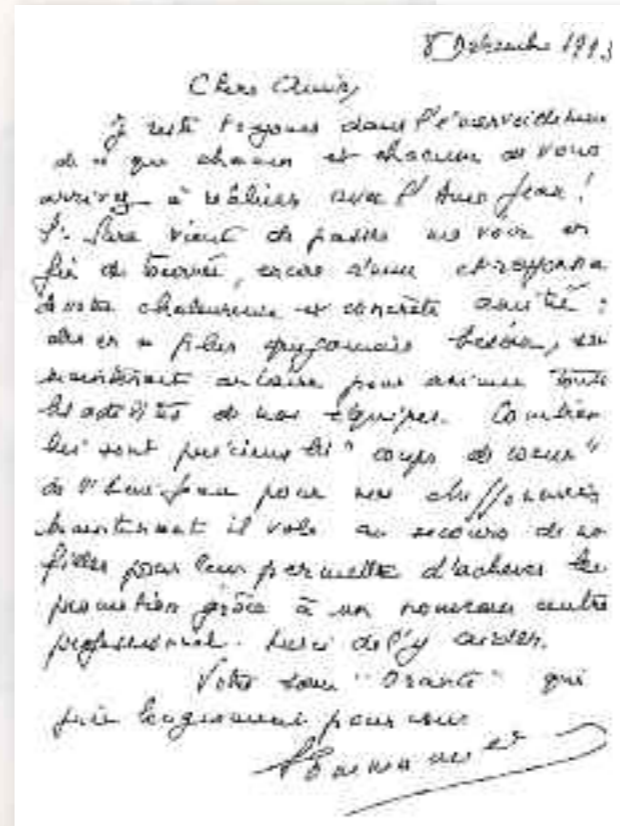 8 Décembre 1993
Chers Amis,
Je reste toujours dans l'émerveillement
de ce que chacun et chacune de vous
arrivez à réaliser avec l'
vient de passer me voir en
fin de tournée, encore
de votre chaleureuse et concrète amitié :
elle en a plus que jamais besoin,
maintenant pour animer toute
les activités de nos équipes. Combien
lui sont précieux les "coups de coeur"
de pour nos chiffonniers
maintenant il vole au secours de nos
filles pour leur permettre d'achever leur
promotion grâce à un nouveau centre
professionnel. Merci de l'y aider.
Votre soeur "Orante" qui
prie longuement pour vous
Emmanuelle